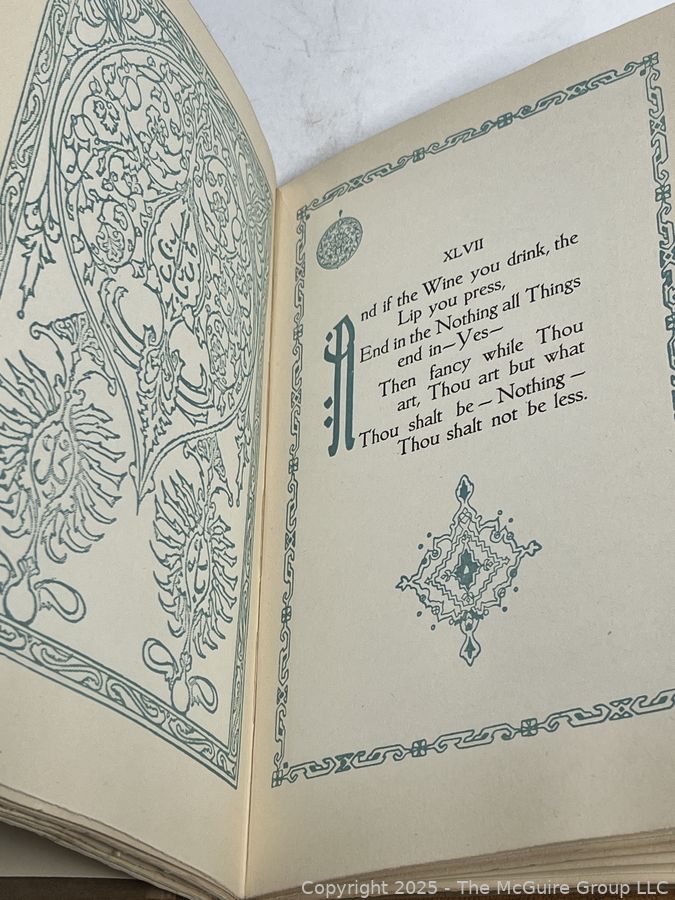 XLVII
And if the Wine you drink, the
Lip you press,
End in the Nothing all Things
end in—Yes—
Then fancy while Thou
art, Thou art but what
Thou shalt be—Nothing—
Thou shalt not be less.
Copyright 2025 - The McGuire Group LLC